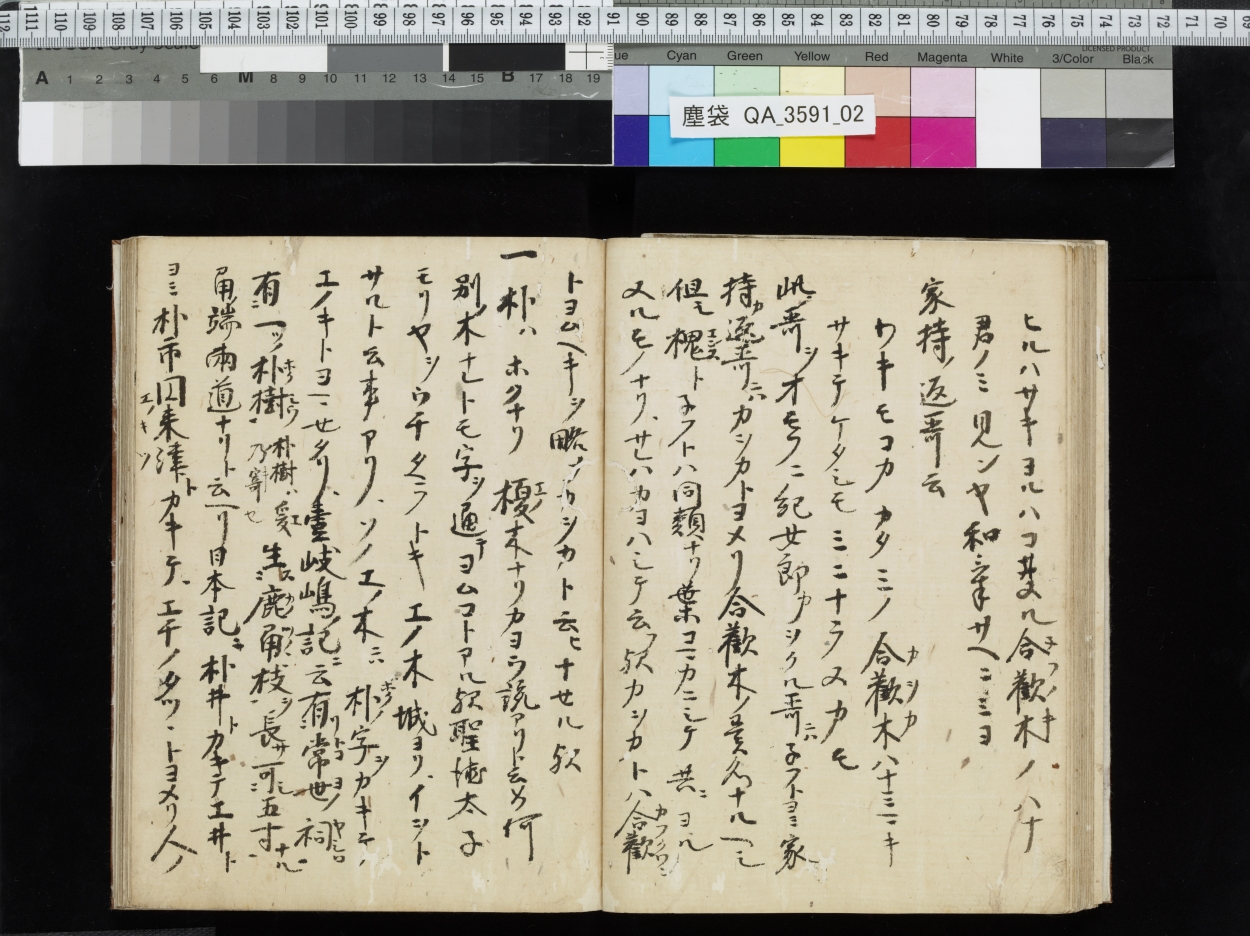 112 111 110 109 108 107 106 105 104 103 102 101 100 99 98 97 96 95 94 93 92 91 90 89 88 87 86 85 84 83 82 81 80 79 78 77 76 75 74 73 72 71 70 69
A 1 2 3 4 5 6 M 8 9 10 11 12 13 14 15 B 17 18 19
Cyan Green Yellow Red Magenta White 3/Color Black
LICENSED PRODUCT
塵袋 QA_3591_02
ヒルハサキヨルハコヒヌル合歓木ノハナ
君ノミ見ンヤ和氣サヘニミヨ
家持ノ返哥云
ワキモコカカタミノ合歓木ハナニニキ
サキテケタシモミニナラヌカモ
此哥シオモフニ紀女郎カシクル哥ニハ子フトヨミ家
持カ返哥ニハカシカトヨメリ合歓木ノ異名ナルヘシ
但モ槐ト子フトハ同類ナリ葉コマカニシテ共ニヨル
ヌルモノナリ、サレハカヨハシテ云フ歟カシカトハ合歓
トヨムヘキシ略シテカシカト云ヒナセル歟
一朴ハホクナリ榎エノ木ナリカヨウ説アリト云々何
別ノ木ナレトモ字シ通テヨムコトアル歟聖徳太子
モリヤシウチタマフトキエノ木城ヨリイシト
サルト云事アリ、ソノエノ木ニハ朴ホヲノ字シカキテ
エノキトヨマセタリ、壹岐嶋記ニ云有常世祠
有一ツノ朴樹朴樹ハ愛乃寄也生鹿角枝長可五寸ナル
角端兩道ナリト云ヘリ日本記ニ朴井トカキテエ井ト
ヨミ朴市田来津トカキテ、エチノタツトヨメリ人ノ